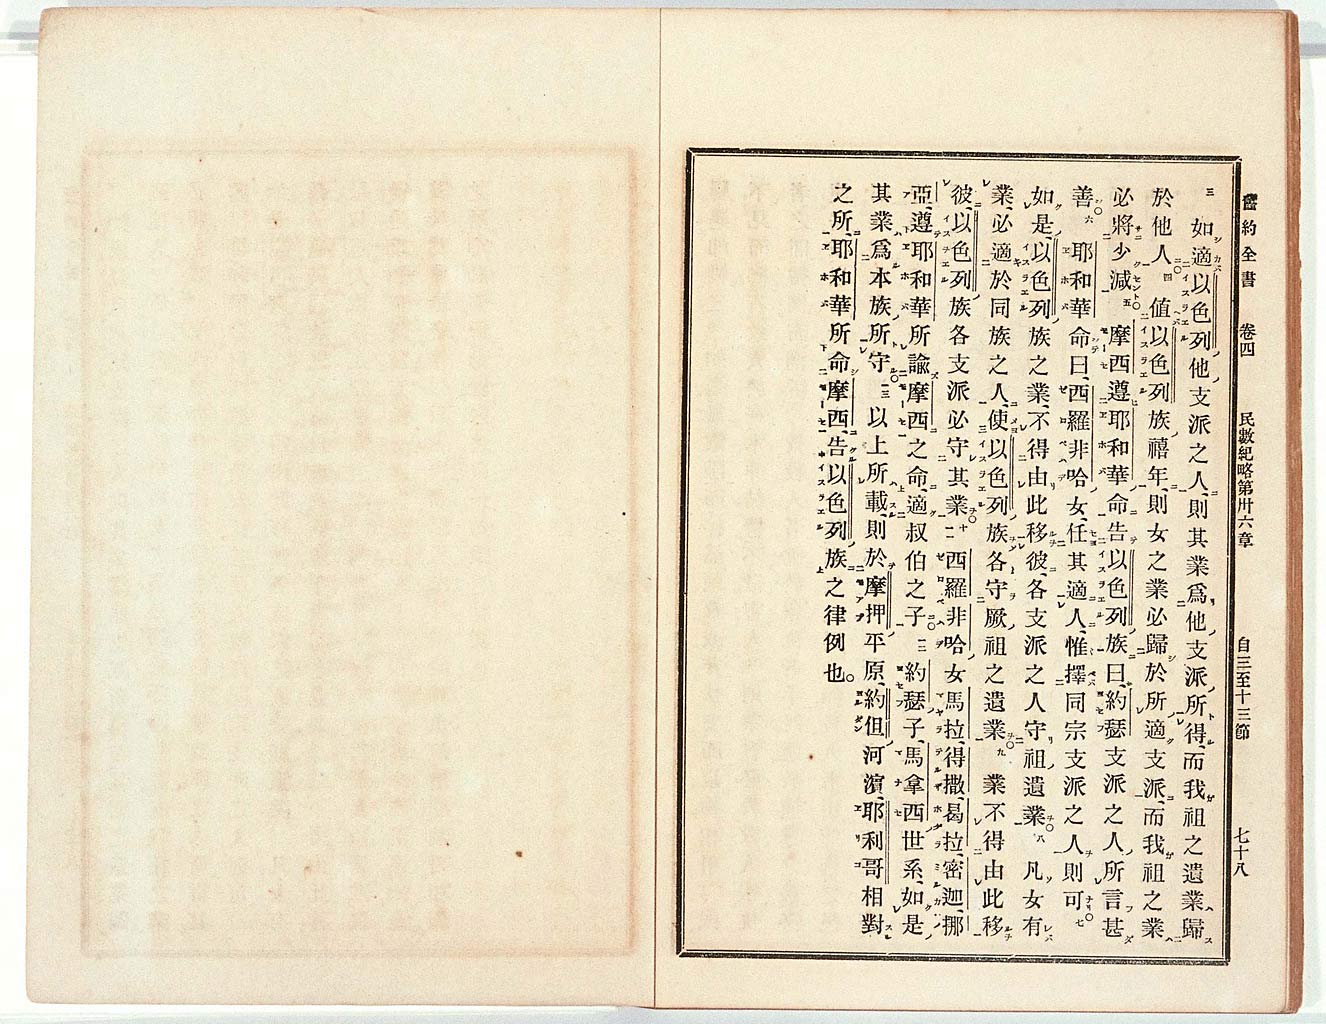 舊約全書 卷四 民數紀略第卅六章 自三至十三節 七十八
三 如適以色列他支派之人、則其業爲他支派所得、而我祖之遺業歸
於他人 四 値以色列族禧年、則女之業必歸於所適支派、而我祖之業
必將少減 五 摩西遵耶和華命告以色列族曰、約瑟支派之人所言甚
善 六 耶和華命曰、西羅非哈女、任其適人、惟擇同宗支派之人則可 七
如是、以色列族之業、不得由此移彼、各支派之人守祖遺業 八 凡女有
業、必適於同族之人、使以色列族各守厥祖之遺業 九 業不得由此移
彼、以色列族各支派必守其業 十 十一 西羅非哈女馬拉、得撒、曷拉、密迦、挪
亞、遵耶和華所諭摩西之命、適叔伯之子 十二 約瑟子、馬拿西世系、如是
其業爲本族所守 十三 以上所載、則於摩押平原、約但河濱、耶利哥相對
之所、耶和華所命摩西、告以色列族之律例也。